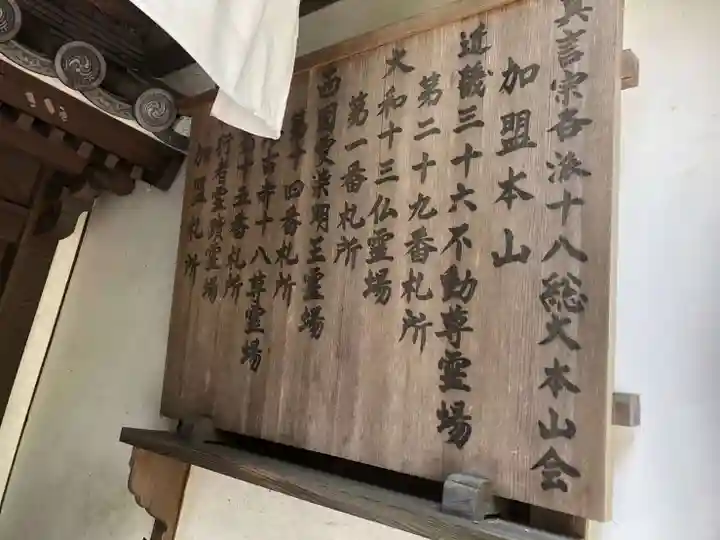 真言宗各派十八総大本山会
加盟本山
近畿三十六不動尊霊場
第二十九番札所
大和十三仏霊場
第一番札所
西国愛染明王霊場
第十四番札所
古寺十八尊霊場
十五番札所
行者霊蹟霊場
加盟札所